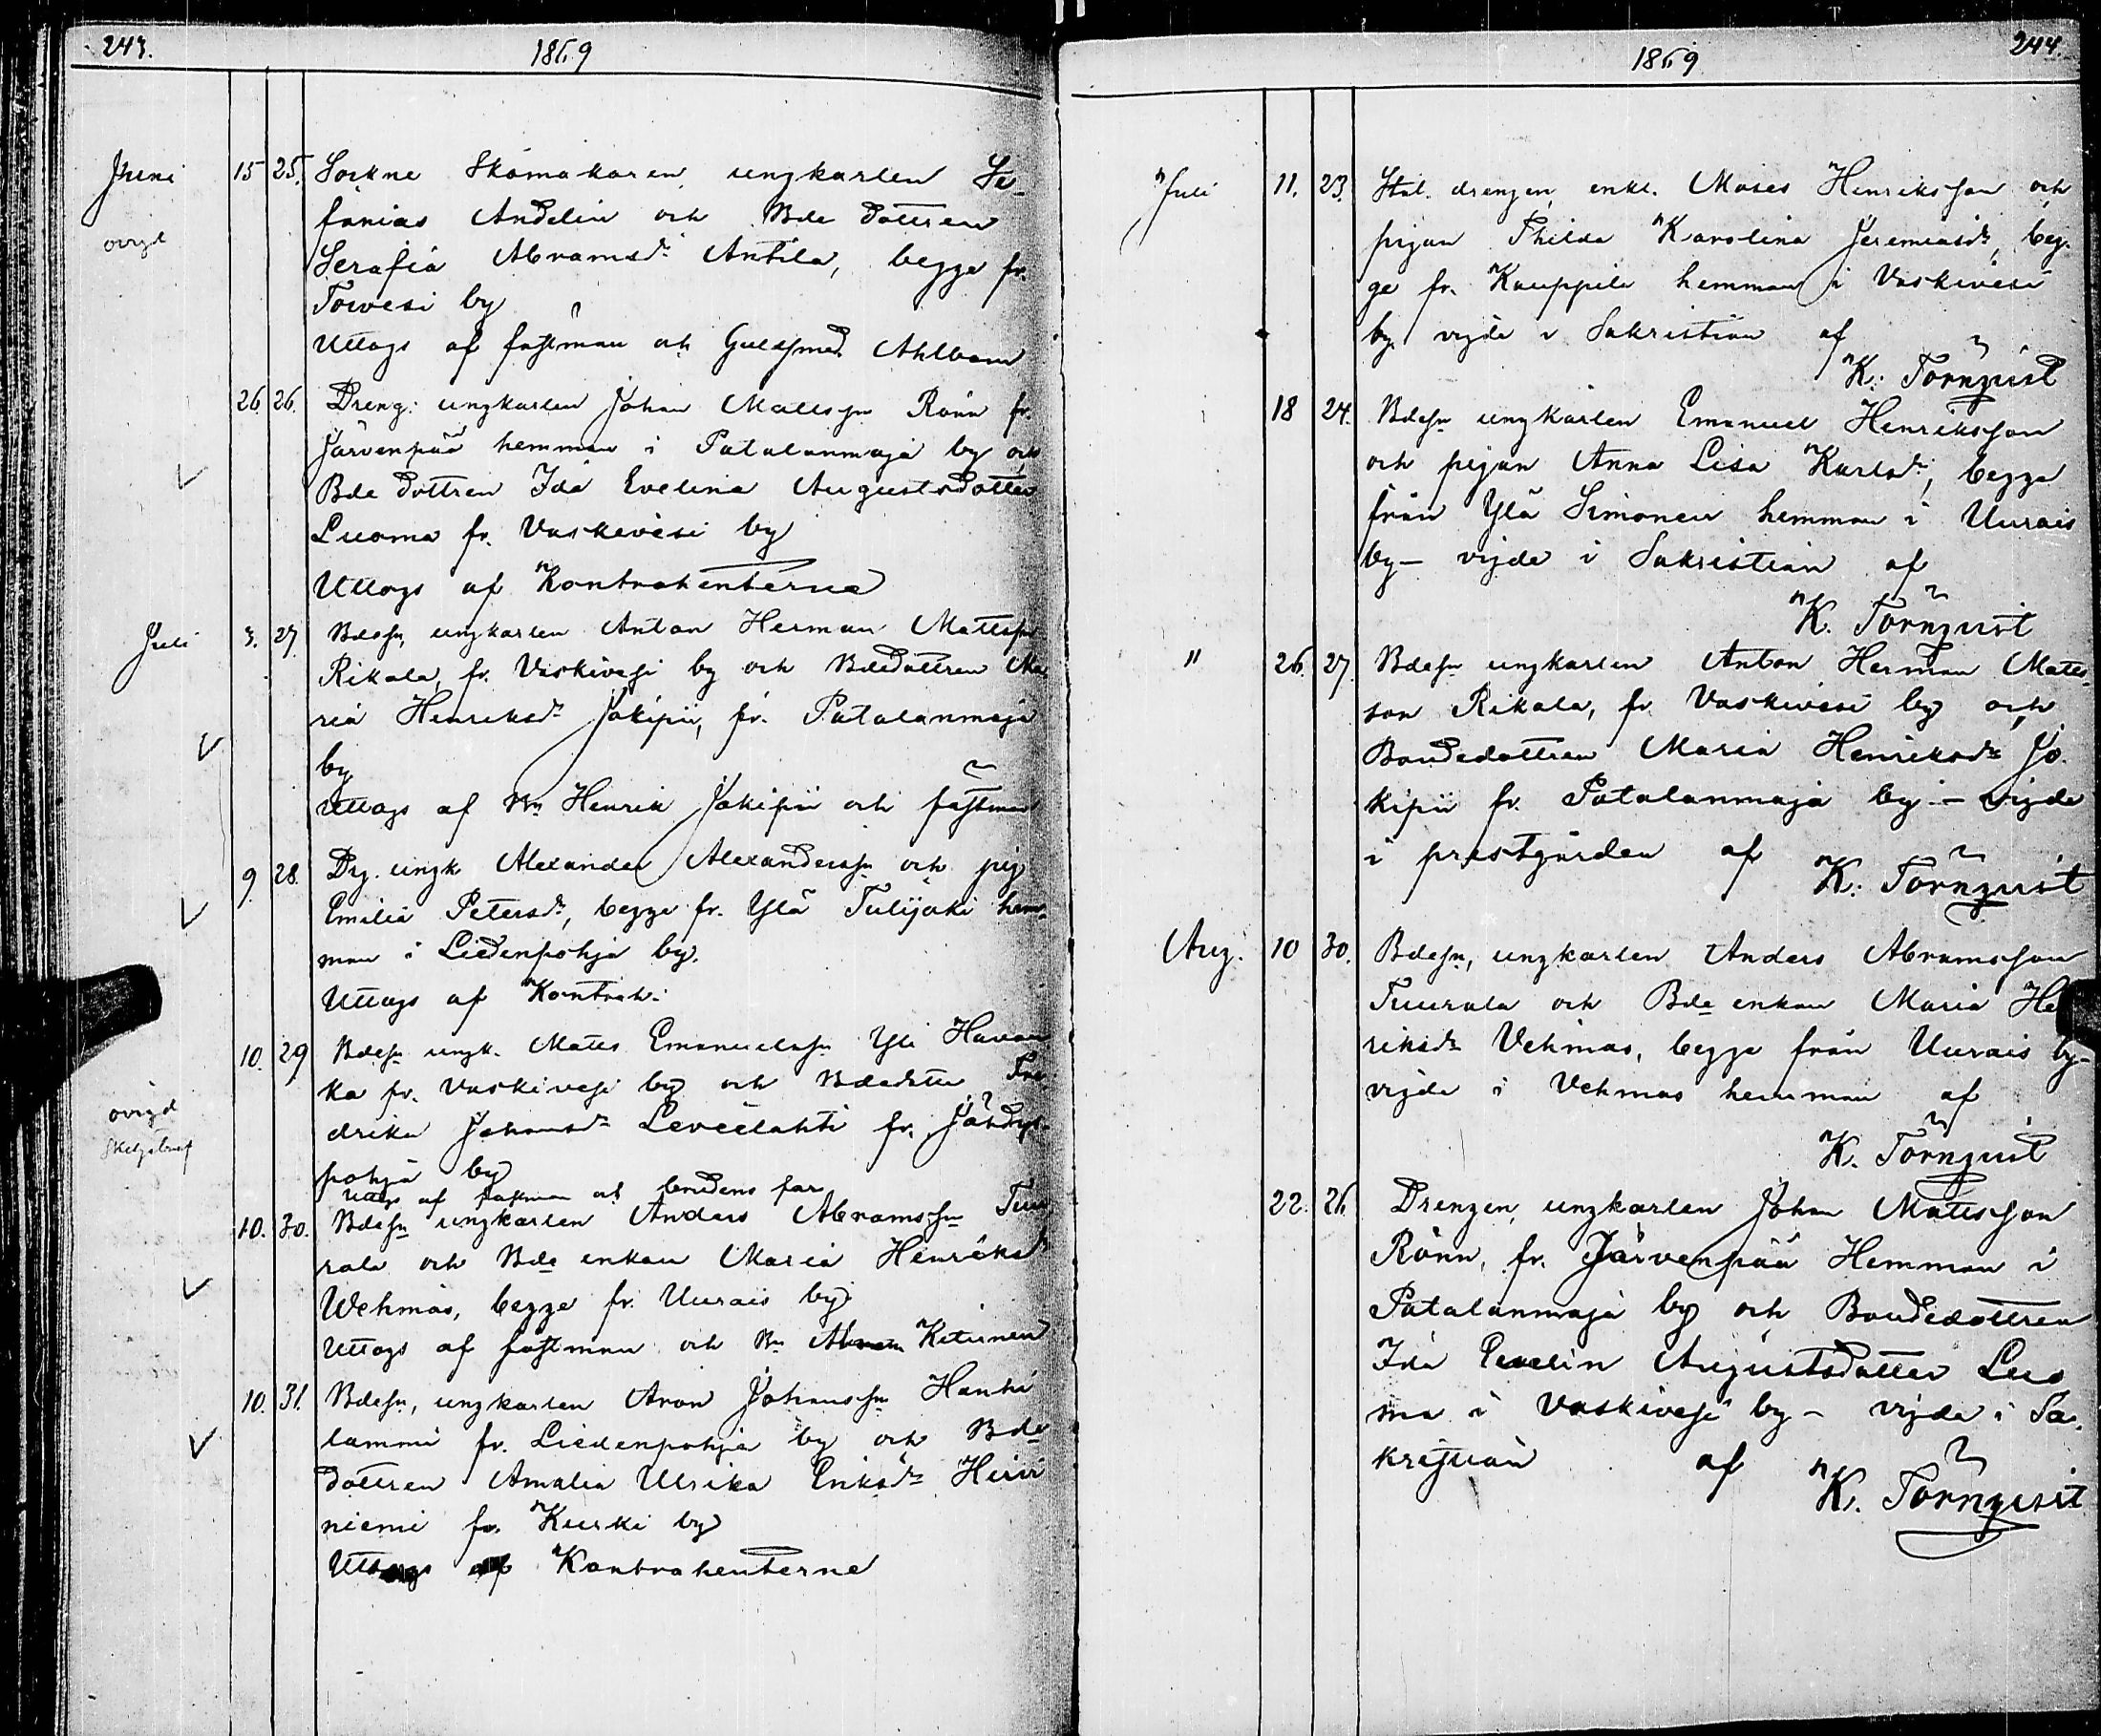 243.
1869
Juni 15 25. Sockne Skomakaren, ungkarlen Se-
ovigd
fanias Andelin och Bde dottren
Serafia Abramsdr Antila, begge fr.
Towesi by
Uttogs af fästman och Guldsmed Ahlbom
26. 26. Dreng. ungkarlen Johan Mattsson Rönn fr.
Järvenpää hemman i Patalanmaja by och
Bde dottren Ida Evelina Augustsdotter
Luoma fr. Vaskivesi by
Uttogs af Kontrahenterna
Juli 3. 27. Bdesn, ungkarlen Anton Herman Mattsson
Rikala, fr. Vaskivesi by och Bdedottren Ma
ria Henriksdr Jokipii, fr. Patalanmaja
by
Uttogs af Bn Henrik Jokipii och fästman
9. 28. Dg. ungk Alexander Alexandersson och pig
Emilia Petersdr, begge fr. Ylä Tulijoki hem-
man i Liedenpohja by.
Uttogs af Kontrah:
10. 29 Bdesn ungk. Matts Emanuelsson Yli Havan
ka fr. Vaskivesi by och Bdedottr Fre-
ovigd
drika Johansdr Leveelahti fr. Jähdys-
Skiljobref
pohja by
Uttogs af fästman och brudens far
10. 30. Bdesn ungkarlen Anders Abramsson Tuu
rala och Bde enkan Maria Henriksdr
Wehmas, begge fr. Uurais by
Uttogs af fästman och Bn Abram Ketunen
10. 31. Bdesn, ungkarlen Aron Johansson Hanhi
lammi fr. Liedenpohja by och Bde
dottren Amalia Ulrika Eriksdr Hirvi
niemi fr. Kurki by
Uttogs af Kontrahenterne
1869
244.
Juli 11. 23. drengen, enkl. Moses Henriksson och
pigan Thilda Karolina Jeremiasdr, beg-
ge fr. Kauppila hemman i Vaskivesi
by vigde i Sakristian af
K. Törnqvist
18 24. Bdesn ungkarlen Emanuel Henriksson
och pigan Anna Lisa Karlsdr, begge
från Ylä Simonen hemman i Uurais
by - vigde i Sakristian af
K. Törnqvist
" 26. 27. Bdesn ungkarlen Anton Herman Matts-
son Rikala, fr. Vaskivesi by och
Bondedottren Maria Henriksdr Jo-
kipii fr. Patalanmaja by - vigde
i prestgården af K. Törnqvist
Aug. 10 30. Bdesn, ungkarlen Anders Abramsson
Tuurala och Bde enkan Maria He
riksdr Vehmas, begge från Uurais by -
vigde i Vehmas hemman af
K. Törnqvist
22. 26. Drengen, ungkarlen Johan Mattsson
Rönn, fr. Järvenpää Hemman i
Patalanmaja by och Bondedottren
Ida Evelin Augustsdotter Luo
ma i Vaskivesi by - vigde i Sa-
kristian af K. Törnqvist